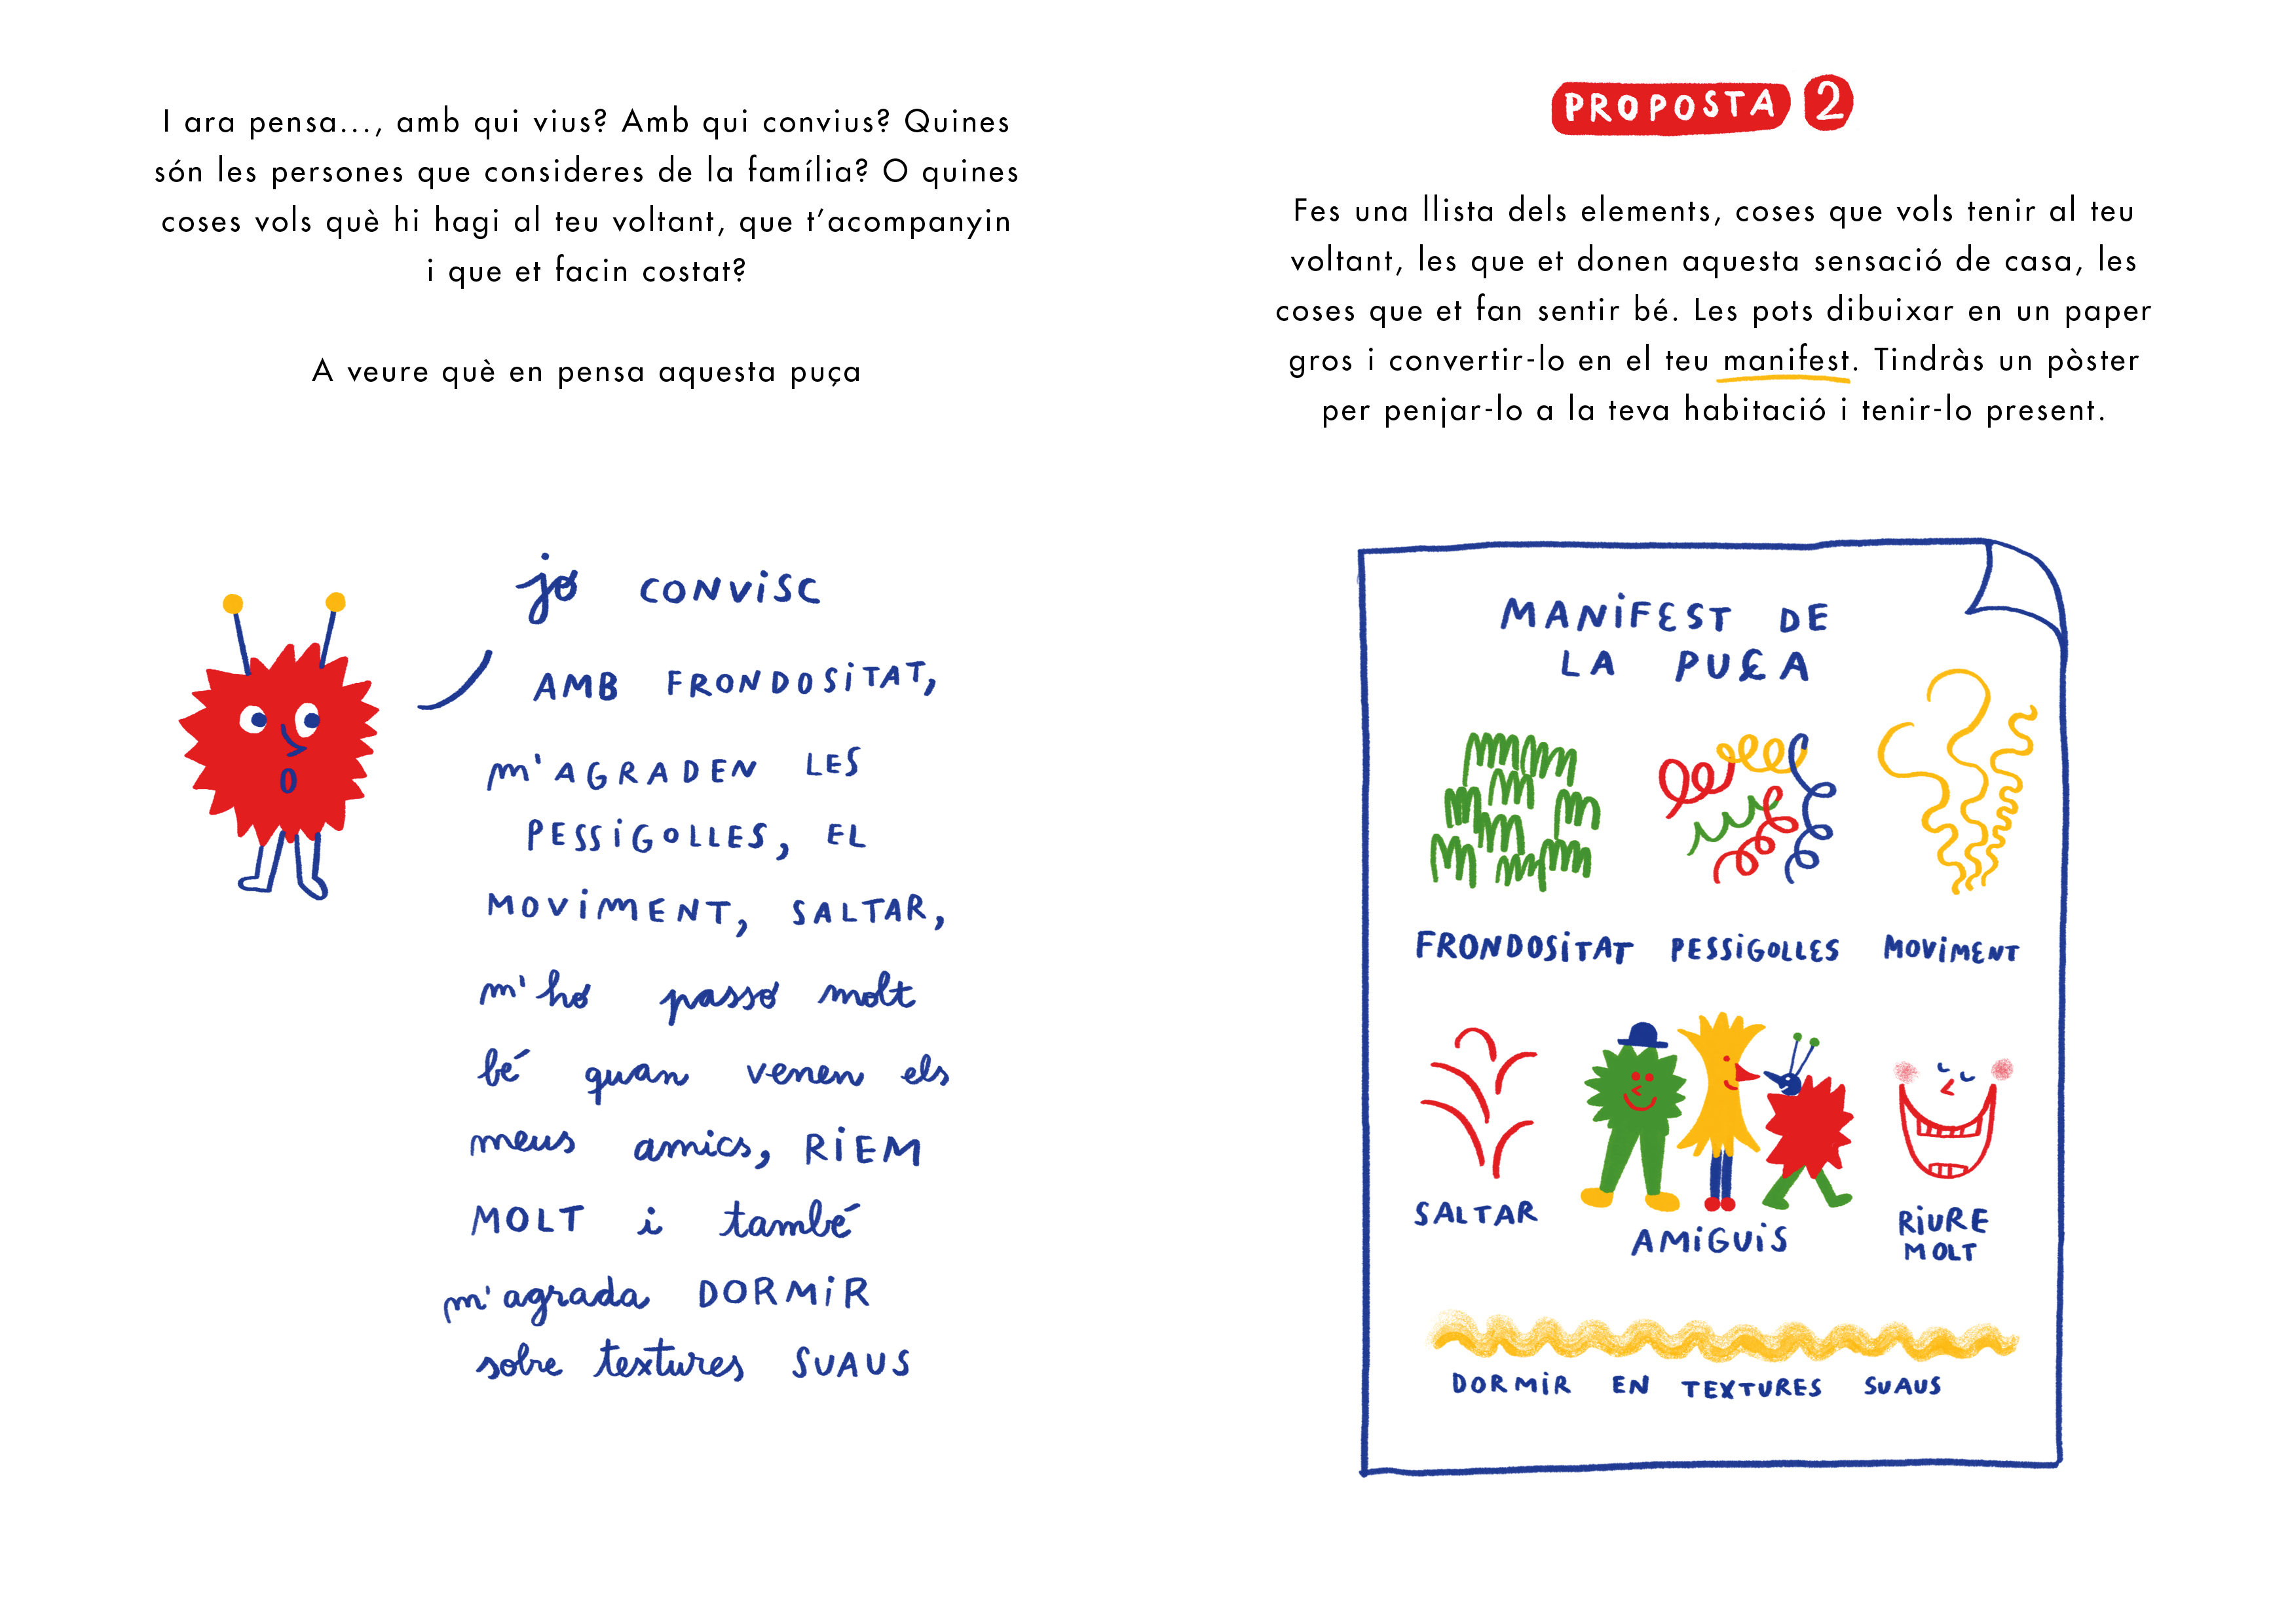 I ara pensa..., amb qui vius? Amb qui convius? Quines
són les persones que consideres de la família? O quines
coses vols què hi hagi al teu voltant, que t'acompanyin
i que et facin costat?
A veure què en pensa aquesta puça
jo CONViSC
AMB FRONDOSiTAT,
m'AGRADEN LES
PESSiGOLLES, EL
MOViMENT, SALTAR,
m'ho passo molt
bé quan venen els
meus amics, RiEM
MOLT i també
m'agrada DORMiR
sobre textures SUAUS
PROPOSTA 2
Fes una llista dels elements, coses que vols tenir al teu
voltant, les que et donen aquesta sensació de casa, les
coses que et fan sentir bé. Les pots dibuixar en un paper
gros i convertir-lo en el teu manifest. Tindràs un pòster
per penjar-lo a la teva habitació i tenir-lo present.
MANiFEST DE
LA PUÇA
FRONDOSiTAT PESSiGOLLES MOViMENT
SALTAR
AMiGUiS
RiURE
MOLT
DORMiR EN TEXTURES SUAUS